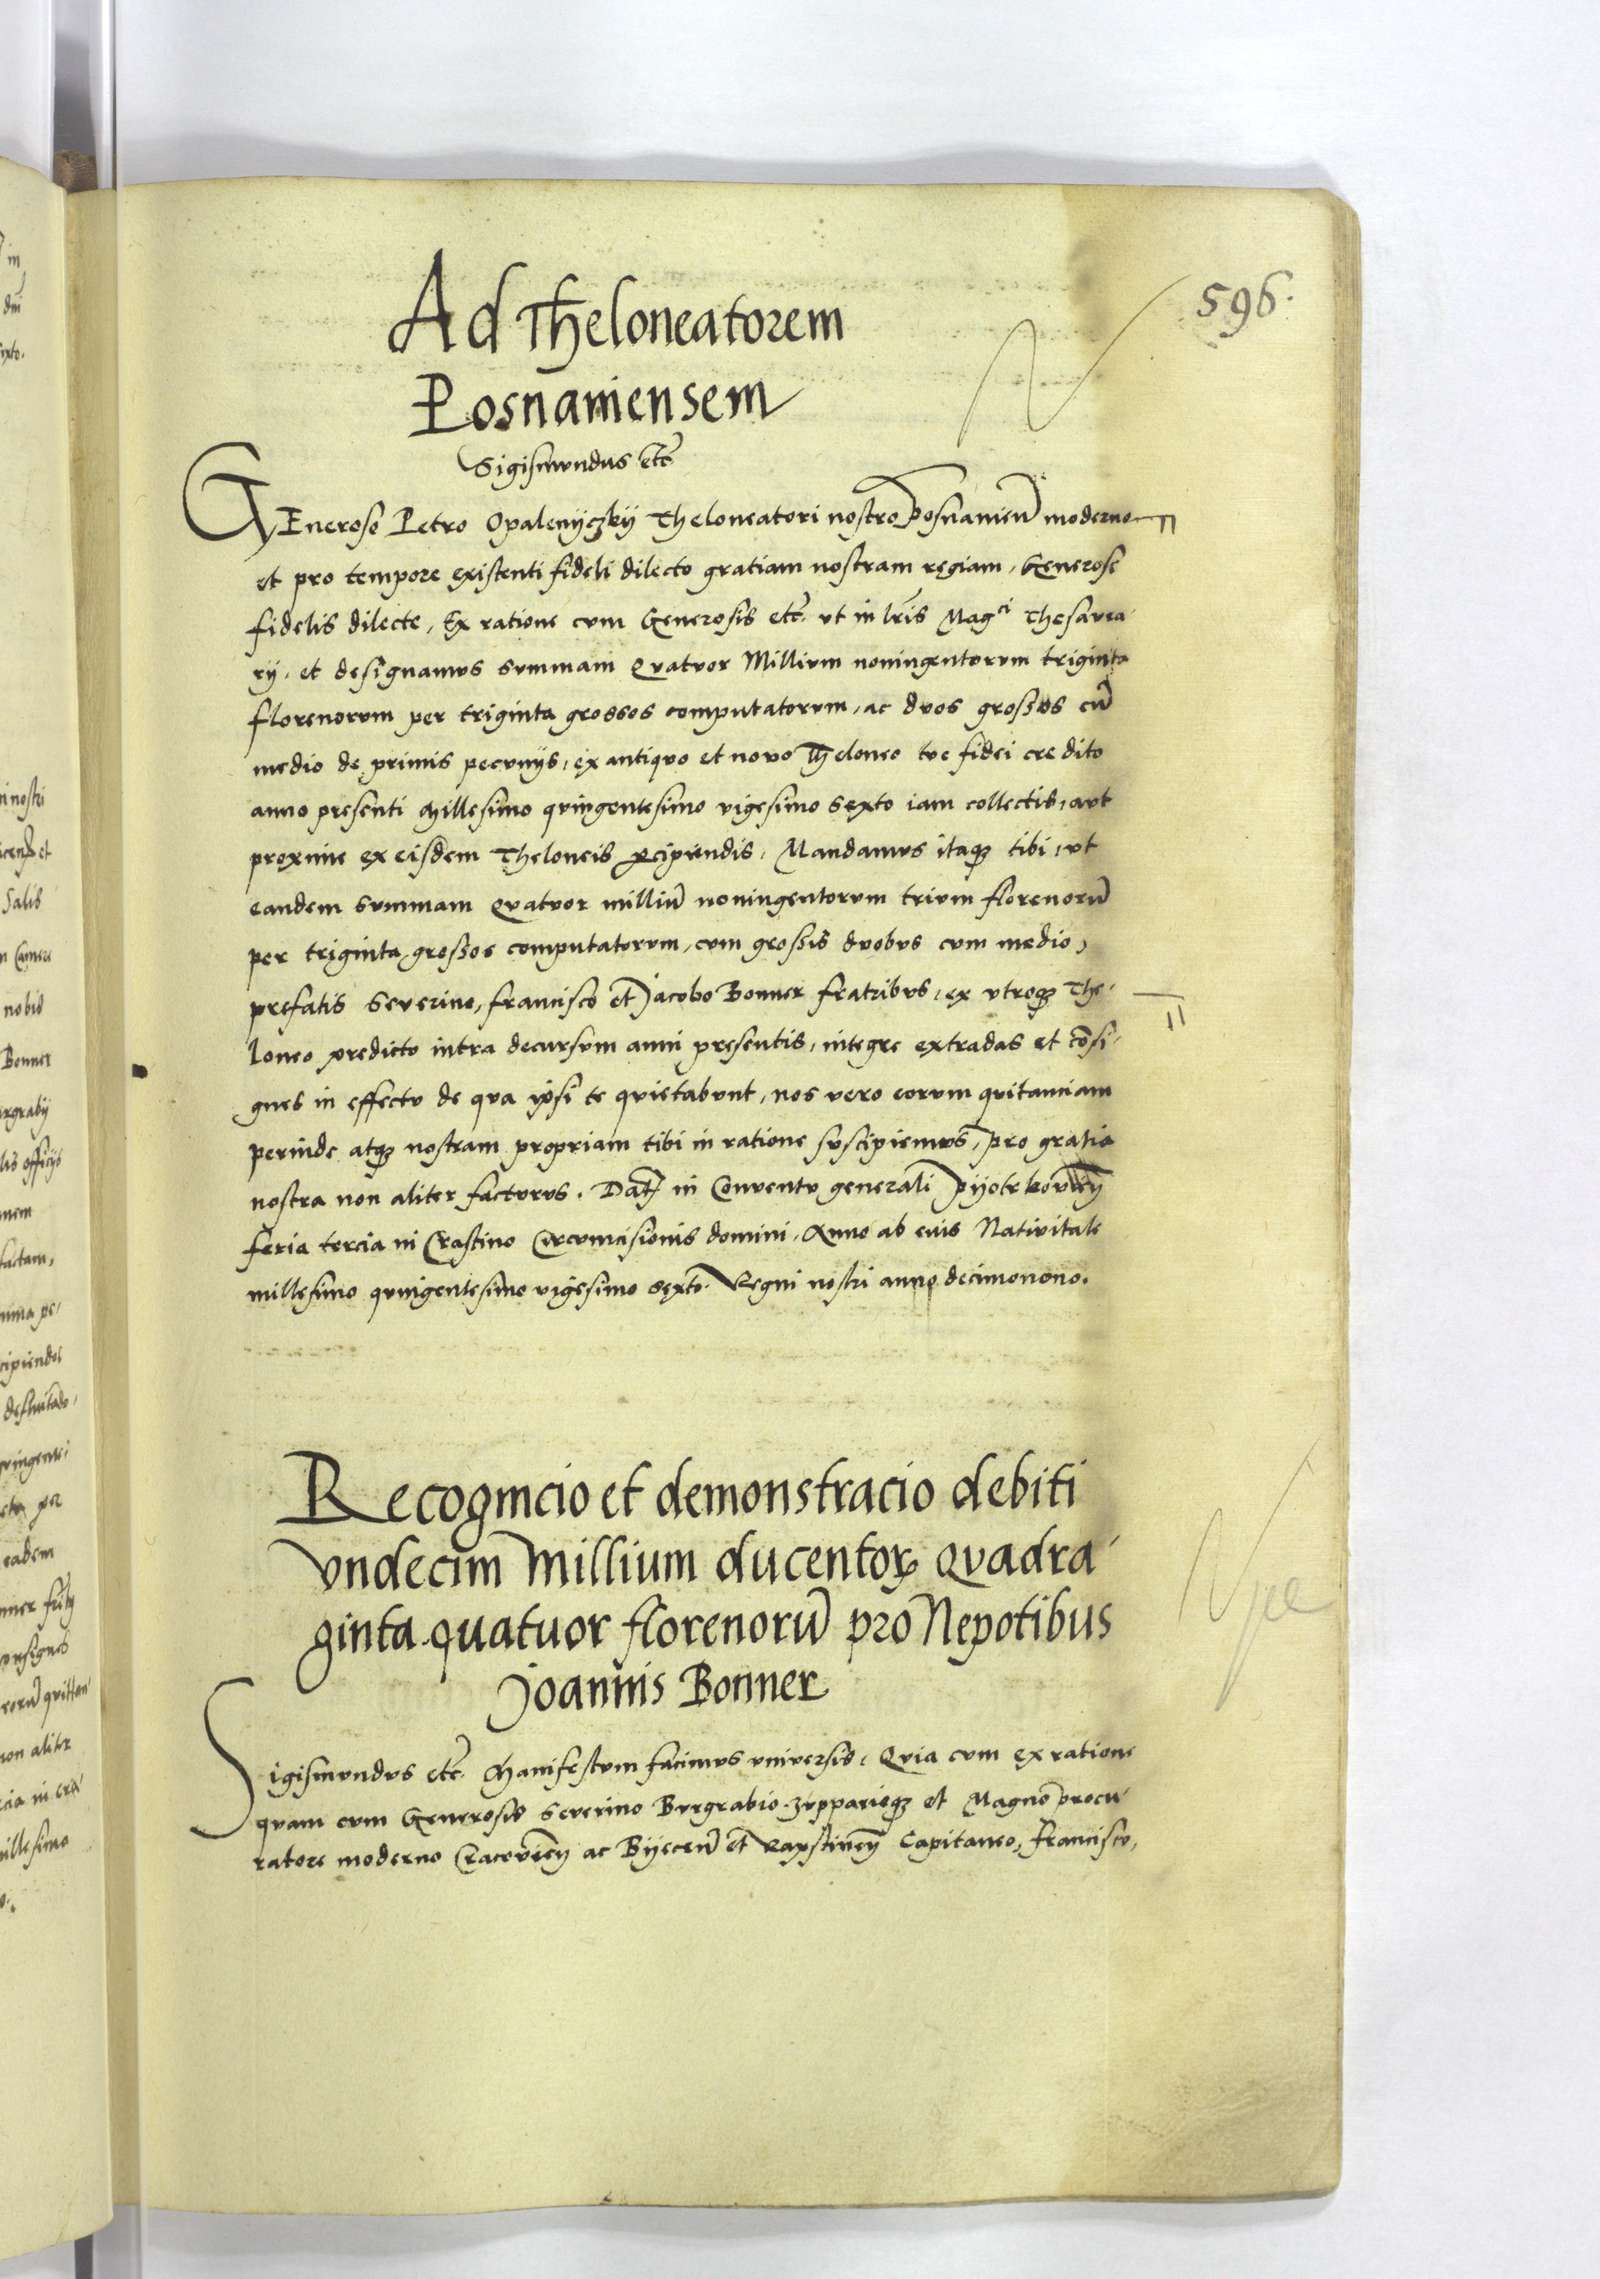 596.
Ad Theloneatorem
Posnaniensem
Sigismundus etc̃
GEneroso Petro Opalenyczky Theloneatori nostro Posnanieñ moderno
et pro tempore existenti fideli dilecto gratiam nostram regiam, Generose
fidelis dilecte, Ex ratione cum Generosis etc̃. vt in lr̃is Mag^ci Thesaura-
rij, et designamus summam Quatuor Millium noningentorum triginta
florenorum per triginta grossos computatorum, ac duos grossos cũ
medio de primis pecunijs, ex antiquo et nouo Theloneo tue fidei credito
anno presenti Millesimo quingentesimo vigesimo sexto iam collectis, aut
proxime ex eisdem Theloneis ꝑcipiendis, Mandamus itaqꝫ tibi, vt
eandem summam Quatuor milliũ noningentorum trium florenorũ
per triginta grossos computatorum, cum grossis duobus cum medio,
prefatis Seuerino, Francisco et Jacobo Bonner fratribus, ex vtroqꝫ The-
loneo predicto intra decursum anni presentis, integre extradas et cõsi-
gnes in effectu de qua ipsi te quietabunt, nos vero eorum quitanciam
perinde atqꝫ nostram propriam tibi in ratione suscipiemus, pro gratia
nostra non aliter facturus. Dat̃ in Conuentu generali Pijotrkouieñ
feria tercia in Crastino Circumcisionis domini, Anno ab eius Natiuitate
millesimo quingentesimo vigesimo sexto. Regni nostri anno decimonono.
Recognicio et demonstracio debiti
vndecim Millium ducentoꝝ Quadra-
ginta quatuor florenorũ pro Nepotibus
Joannis Bonner
Sigismundus etc̃. Manifestum facimus vniuersis, Quia cum ex ratione
quam cum Generosis Seuerino Burgrabio Zupparioqꝫ et Magno Procu-
ratore moderno Cracouieñ ac Bijeceñ et Rapstineñ Capitaneo, Francisco,